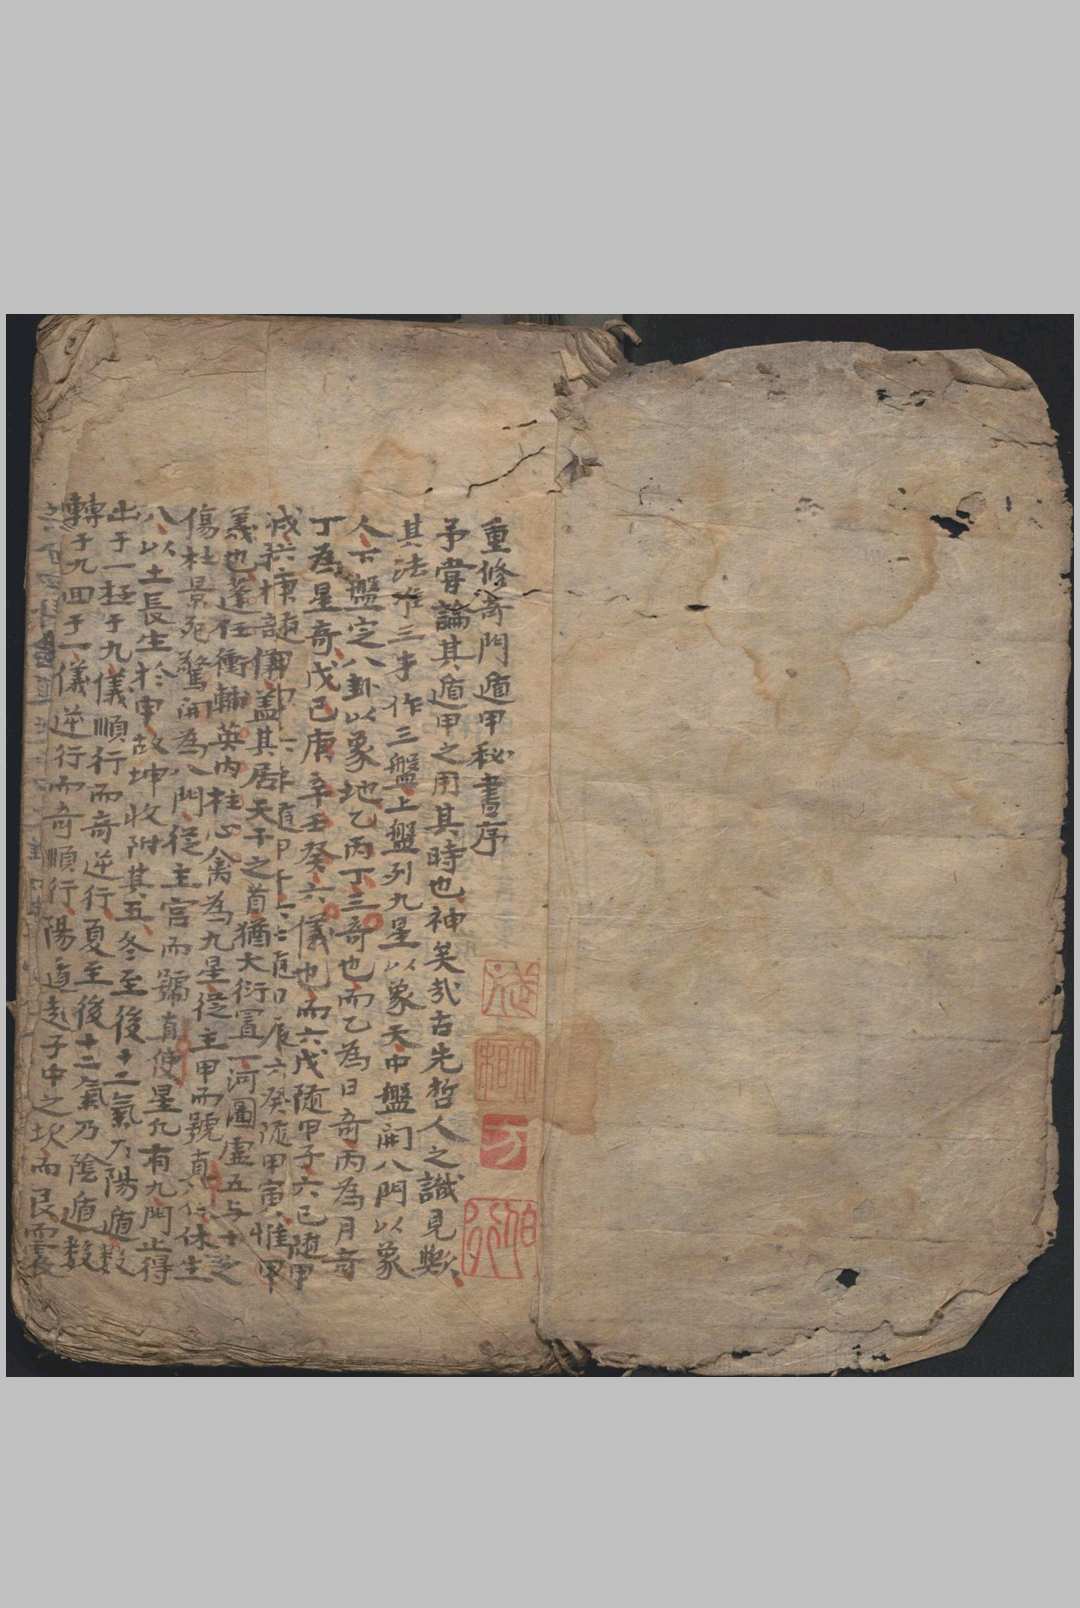 重修奇門遁甲秘書序
予嘗論其遁甲之用其時也神矣哉古先哲人之識見歟
其法作三盤上盤列九星以象天中盤開八門以象
人下盤定八卦以象地乙丙丁三奇也而乙為日奇丙為月奇
丁為星奇戊己庚辛壬癸六儀也而六戊隨甲子六己随甲
戌六庚 六癸隨甲寅惟甲
儀蓋其居天干之首猶大衍置一河圖虛五与十之
義也蓬任衝輔英內柱心禽為九星從主甲而號直符休生
傷杜景死驚開為八門從主宮而號直使星凡有九門止得
八以土長生於申故坤收附其五冬至後十二氣乃陽遁数
出于一極于九儀順行而奇逆行夏至後十二氣乃陰遁数
轉于九回于一儀逆行而奇順行陽遁起子中之坎而艮而震